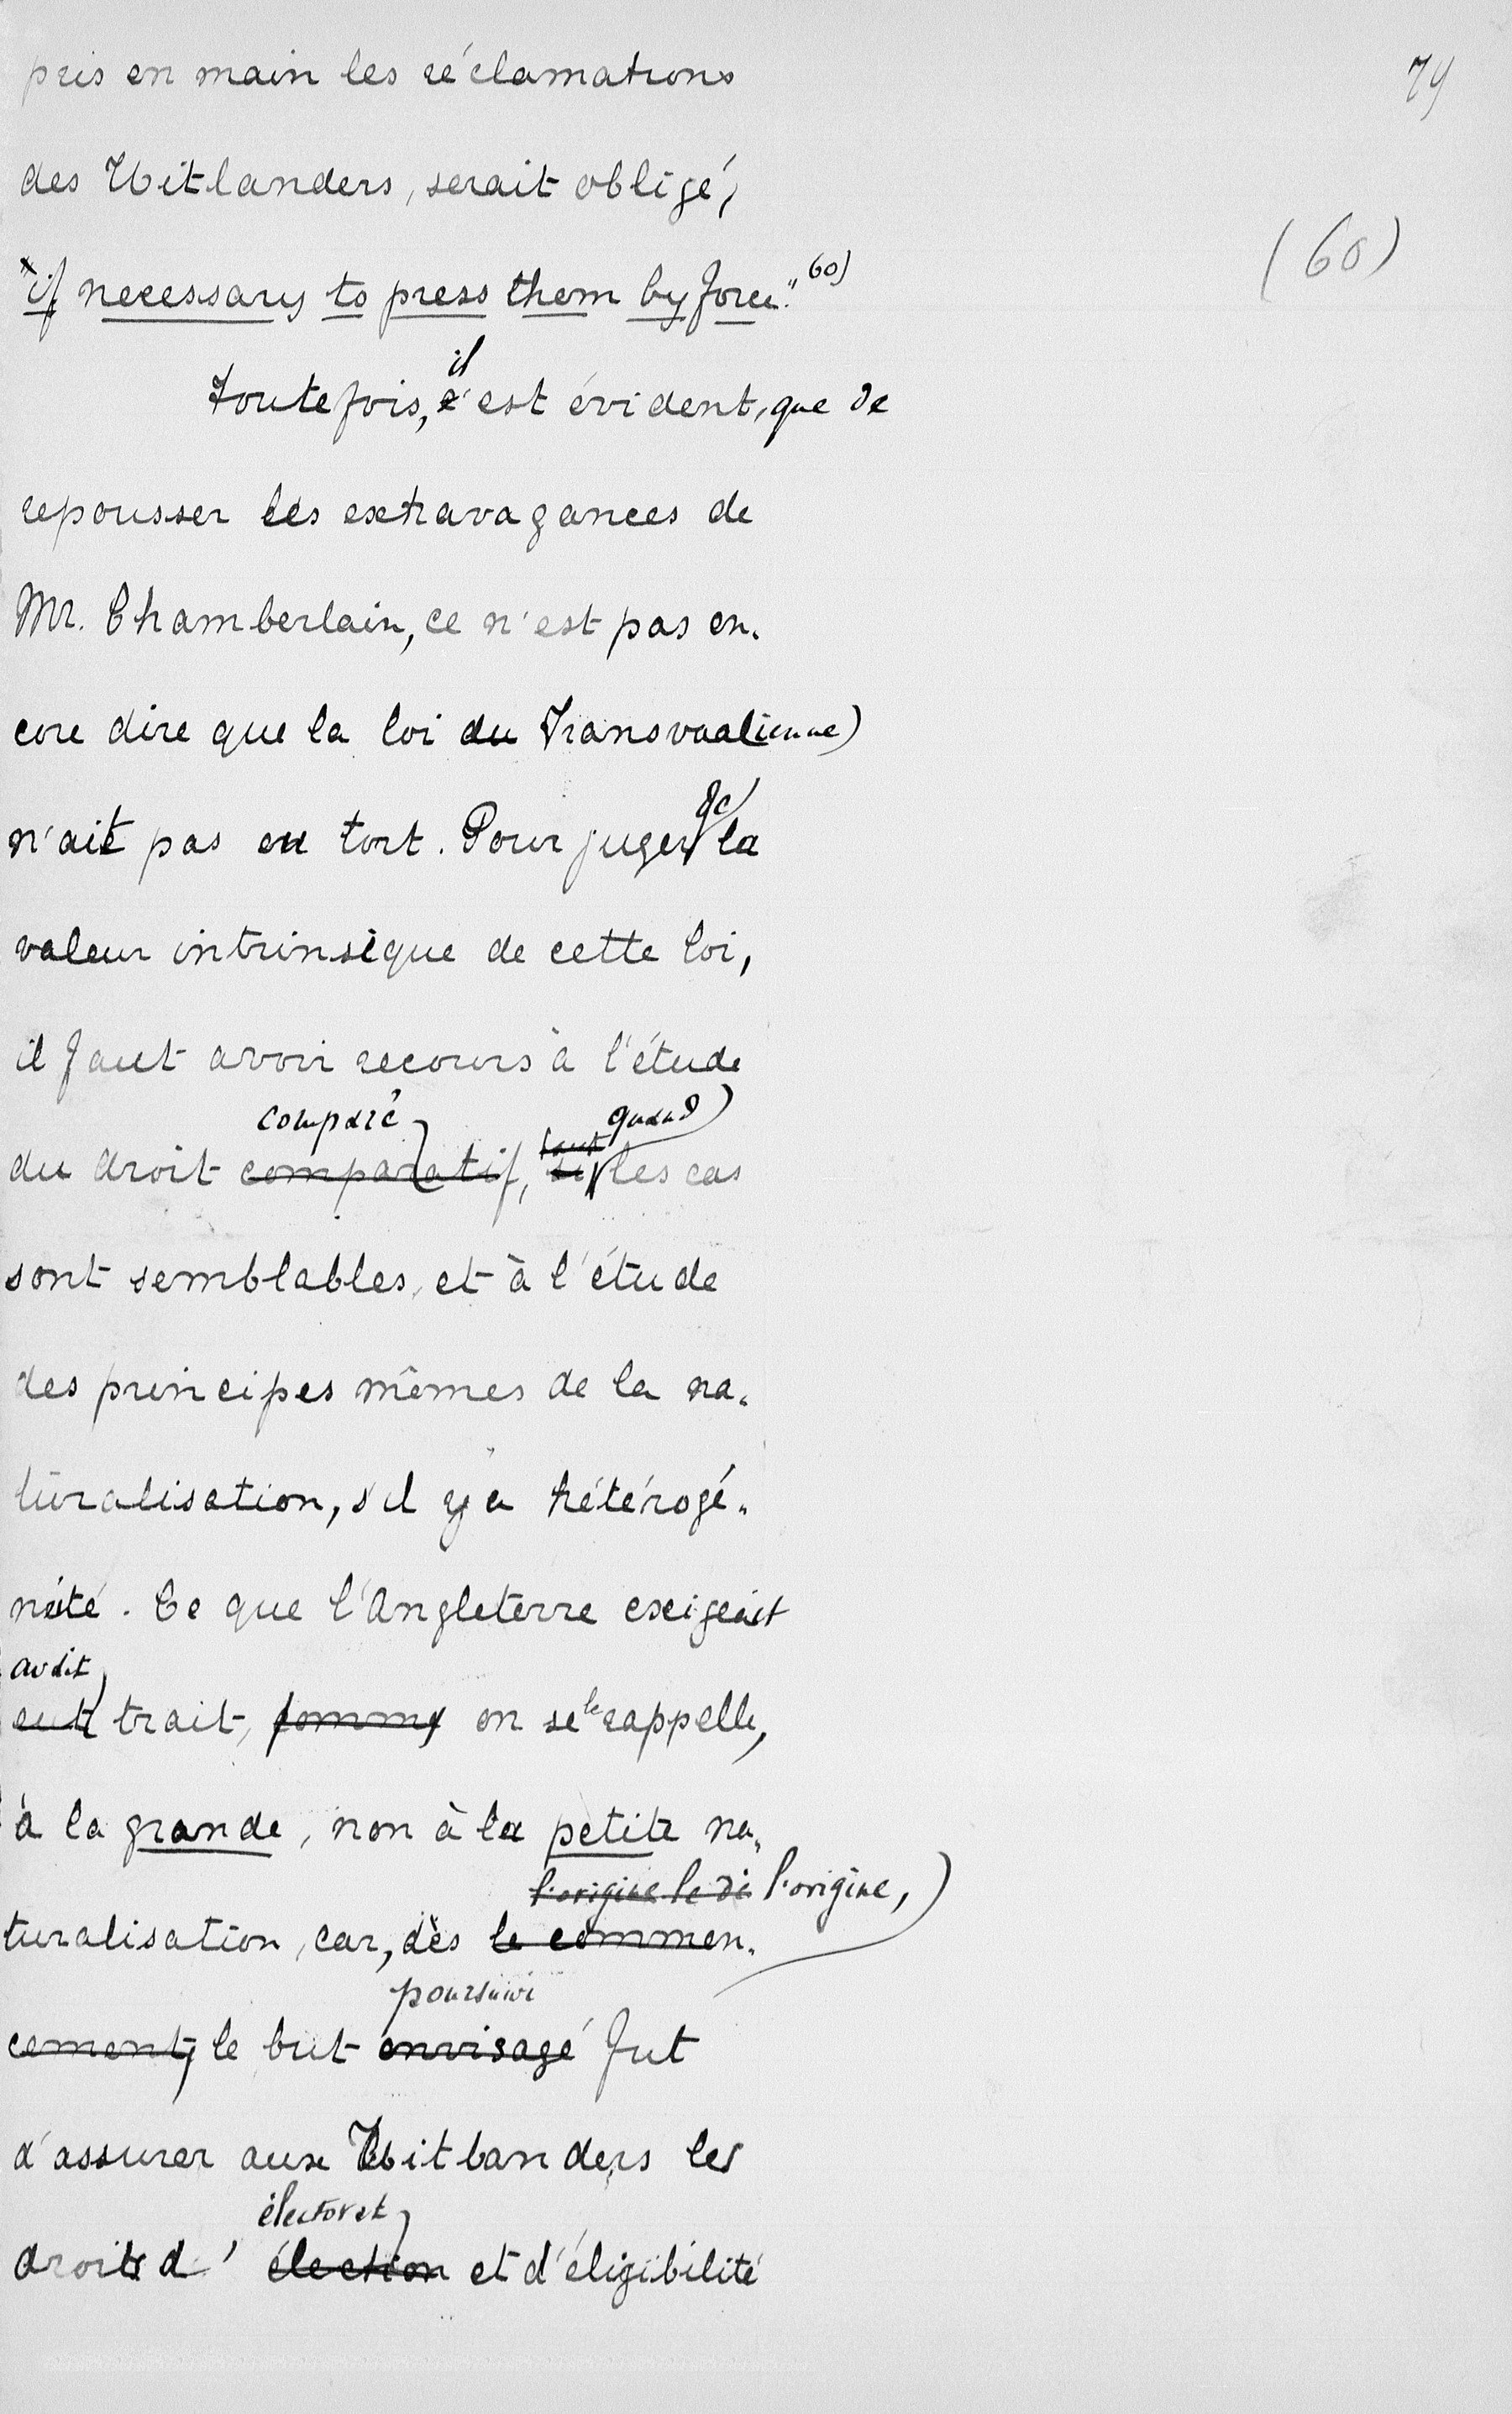 79
pris en main les réclamations
des Uitlanders, serait obligé,
"if necessary to press them by force." 60)
(60)
il
Toutefois, c'est évident, que de
repousser les extravagances de
Mr. Chamberlain, ce n'est pas en-
core dire que la loi du Transvaalienne)
n'ait pas eu tort. Pour juger de la
valeur intrinsèque de cette loi,
il faut avoir recours à l'étude
comparé quand)
du droit comparatif, si les cas
sont semblables, et à l'étude
des principes mêmes de la na-
turalisation, s'il y a hétérogé-
néité. Ce que l'Angleterre exigeait
avait
eut trait, comme on se le rappelle,
à la grande, non à la petite na-
l'origine le di l'origine,)
turalisation, car, dès le commen-
poursuivi
cement, le but envisagé fut
d'assurer aux Uitlanders les
électorat
droits d' élection et d'éligibilité